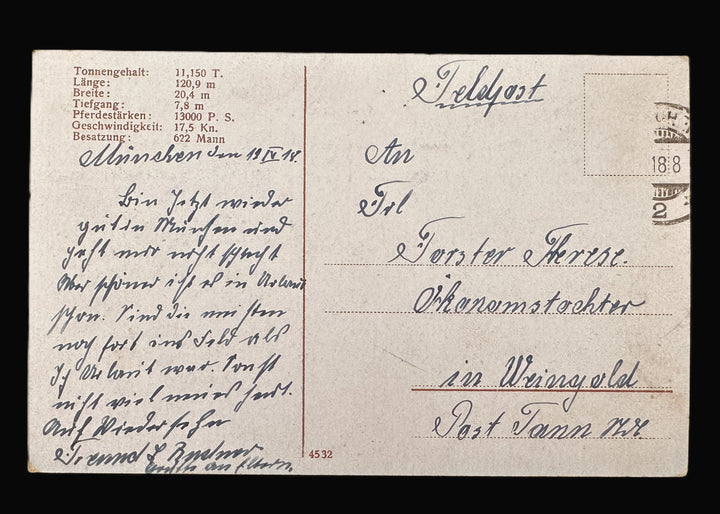 Tonnengehalt: 11,150 T.
Länge: 120,9 m
Breite: 20,4 m
Tiefgang: 7,8 m
Pferdestärken: 13000 P. S.
Geschwindigkeit: 17,5 Kn.
Besatzung: 622 Mann
München den 19 IV 18.
Bin Jetzt wieder
gut in München und
geht mir nicht schlecht
Aber schöner ist es in Urlaub
schon. Sind die meisten
noch fort ins Feld als
Ich Urlaub war. Sonst
nicht viel neues hast.
Auf Wiedersehn
Freund
Feldpost
An
Frl
Forster Therese.
Ökonomstochter
in Weingold
Post Tann
18 8
2
4532